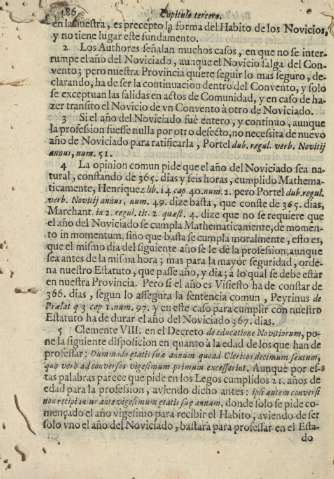 186 Capitulo tercero.
en la nuestra, es precepto la forma del Habito de los Novicios,
y no tiene lugar este fundamento.
2 Los Authores señalan muchos casos, en que no se inter-
rumpe el año del Noviciado, aunque el Novicio salga del Con-
vento; pero nuestra Provincia quiere seguir lo mas seguro, de-
clarando, ha de ser la continuacion dentro del Convento, y solo
se exceptuan las salidas en actos de Comunidad, y en caso de ha-
zer transito el Novicio de vn Convento à otro de Noviciado.
3 Si el año del Noviciado fuè entero, y continuo, aunque
la profession fuesse nulla por otro defecto, no necesita de nuevo
año de Noviciado para ratificarla, Portel dub. regul. verb. Novitij
annus, num. 51.
4 La opinion comun pide que el año del Noviciado sea na-
tural, constando de 365. dias y seis horas, cumplido Mathema-
ticamente, Henriquez lib. 14. cap. 40. num. 2. pero Portel dub. regul.
verb. Novitij annus, num. 49. dize basta, que conste de 365. dias,
Marchant. in 2. regul. tit. 2. quæst. 4. dize que no se requiere que
el año del Noviciado se cumpla Mathematicamente, de momen-
to in momentum, sino que basta se cumpla moralmente, esto es,
que el mismo dia del siguiente año se le dè la profession, aunque
sea antes de la misma hora; mas para la mayor seguridad, orde-
na nuestro Estatuto, que passe año, y dia; à lo qual se debe estàr
en nuestra Provincia. Pero si el año es Visiesto ha de constar de
366. dias, segun lo assegura la sentencia comun, Peyrinus de
Prælat q 3 cap 1. num. 97. y en este caso para cumplir con nuestro
Estatuto ha de durar el año del Noviciado 367. dias.
5 Clemente VIII. en el Decreto de educatione Novitiorum, po-
ne la siguiente disposicion en quanto à la edad de los que han de
professar: Dummodo etatis suæ annum quoad Clericos decimum sextum,
quo verò ad conversos vigesimum primum excesserint. Aunque por es-
tas palabras parece que pide en los Legos cumplidos 21. años de
edad para la profession, aviendo dicho antes: ipsi autem conversi
non recipiantur ante vigesimum etatis suæ annum, donde solo se pide co-
mençado el año vigesimo para recibir el Habito, aviendo de ser
solo vno el año del Noviciado, bastarà para professar en el Esta-
do